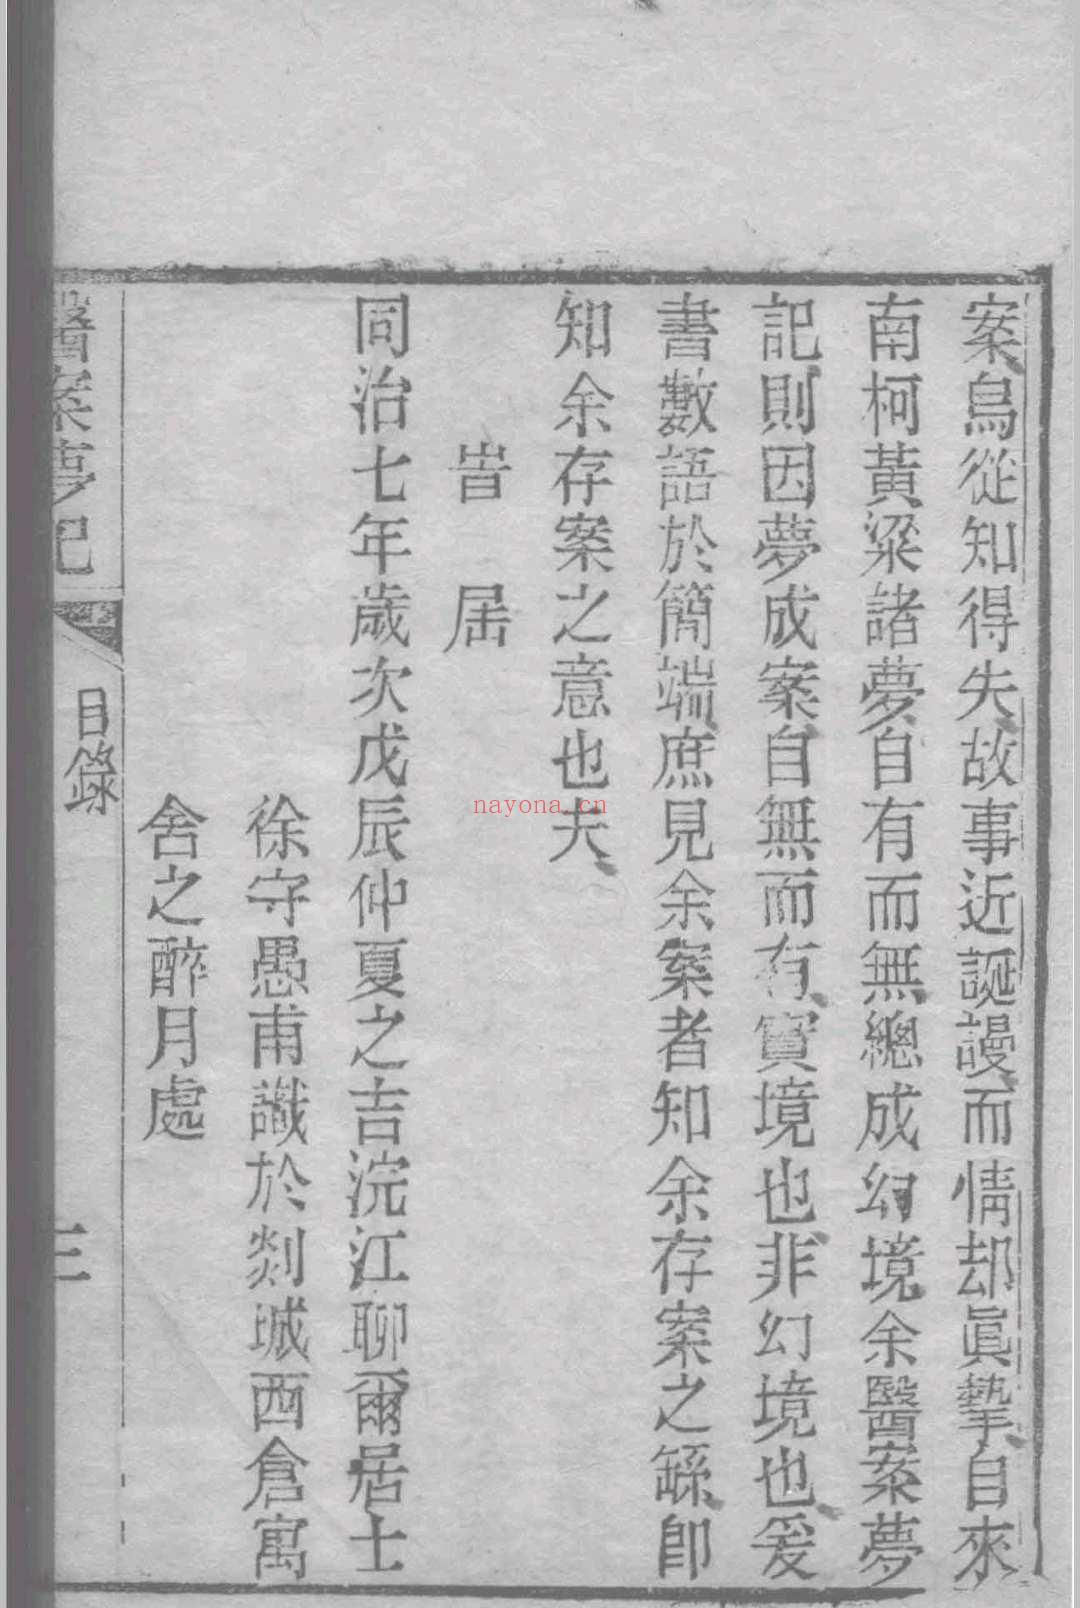 案烏從知得失故事近誕謾而情却眞摯自來
南柯黃粱諸夢自有而無總成幻境余醫案夢
記則因夢成案自無而有實境也非幻境也爰
書數語於簡端庶見余案者知余存案之繇即
知余存案之意也夫
旹 㞐
同治七年歲次戊辰仲夏之吉浣江聊爾居士
徐守愚甫識於剡城西倉寓
舍之醉月處
醫案夢記
目錄
三
nayona.cn